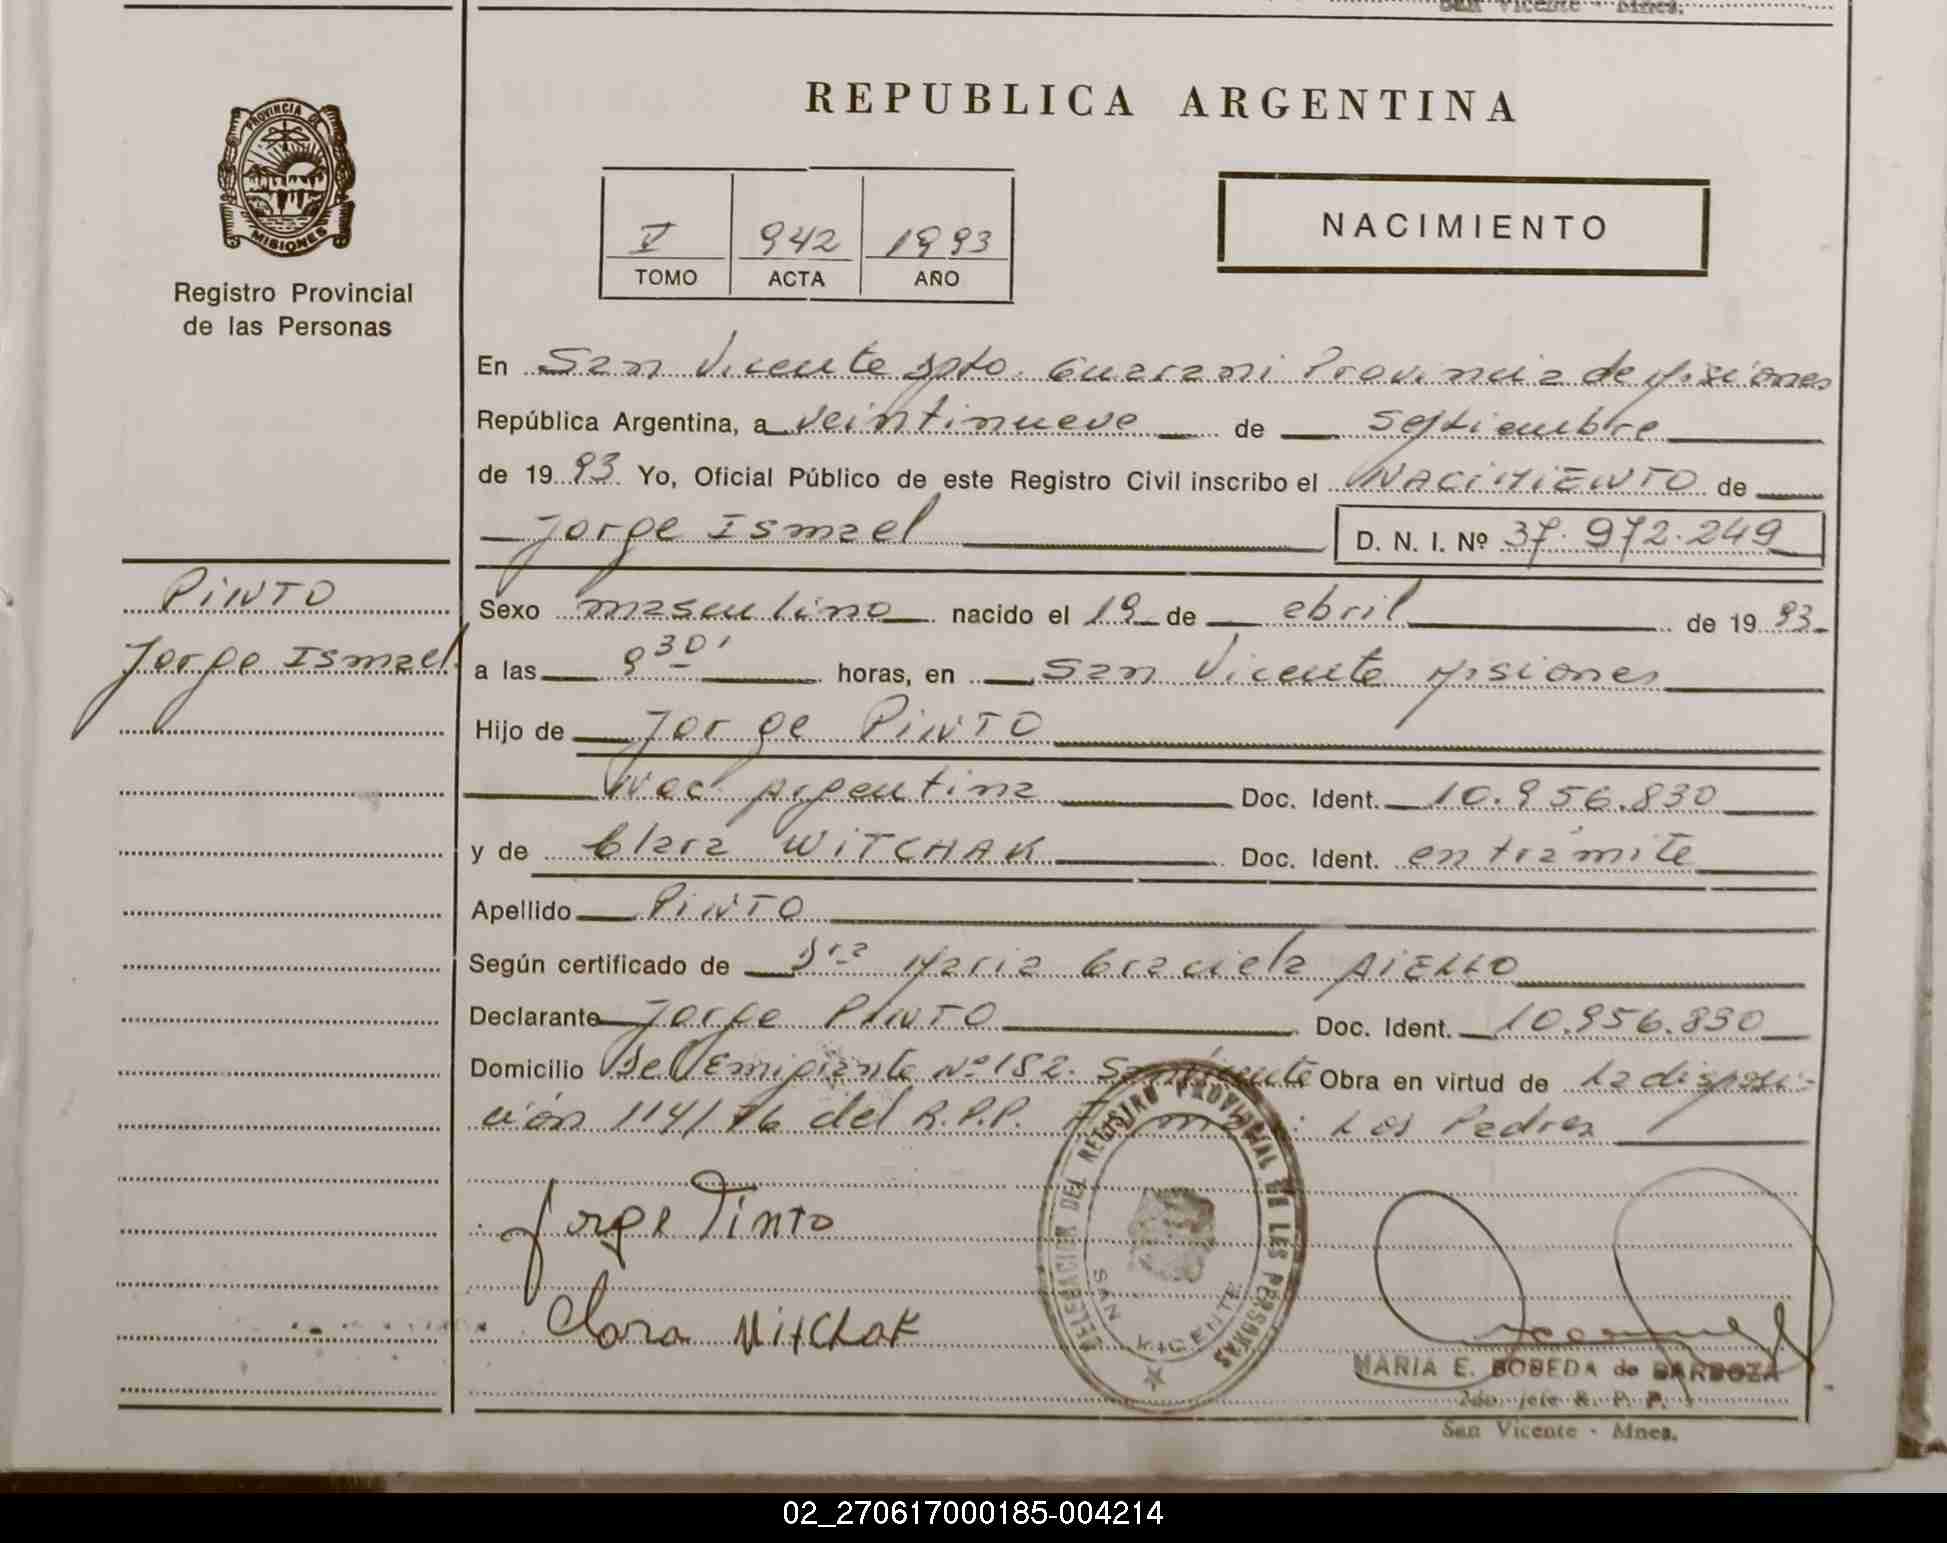 San Vicente - Mnes.
REPUBLICA ARGENTINA
PROVINCIA DE
MISIONES
Registro Provincial
de las Personas
V 942 1993
TOMO ACTA AÑO
NACIMIENTO
En San Vicente Dpto. Guarani Provincia de Misiones
República Argentina, a veintinueve de septiembre
de 1993. Yo, Oficial Público de este Registro Civil inscribo el NACIMIENTO de
Jorge Ismael D. N. I. Nº 37.972.249
PINTO
Jorge Ismael
Sexo masculino nacido el 19 de abril de 1993
a las 9 30' horas, en San Vicente Misiones
Hijo de Jorge PINTO
Nac. Argentina Doc. Ident. 10.956.830
y de Clara WITCHAK Doc. Ident. en trámite
Apellido PINTO
Según certificado de Dra Maria Graciela AIELLO
Declarante Jorge PINTO Doc. Ident. 10.956.830
Domicilio Del Emigrante Nº 182. San Vicente Obra en virtud de La disposi-
ción 114/76 del R.P.P. Firman: Los Padres
Jorge Pinto
Clara Witchak
DELEGACION DEL REGISTRO PROVINCIAL DE LES PERSONAS
SAN VICENTE
MARIA E. BOBEDA de BARBOZA
2do. jefe R. P. P.
San Vicente - Mnes.
02_270617000185-004214